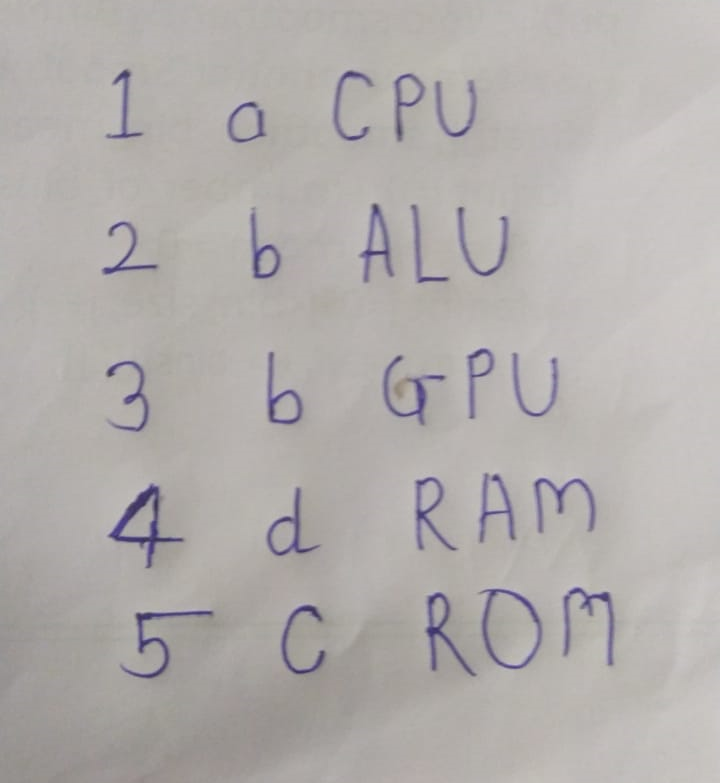 1 a CPU
2 b ALU
3 b GPU
4 d RAM
5 C ROM